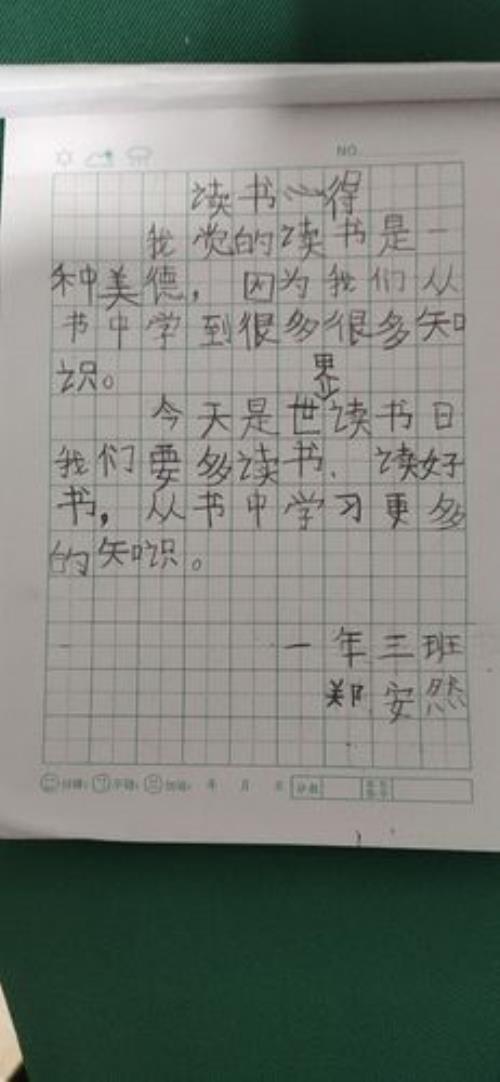 NO.
读书心得
我觉的读书是一
种美德，因为我们从
书中学到很多很多知
识。
今天是世界读书日
我们要多读书、读好
书，从书中学习更多
的知识。
一年三班
郑安然
年 月 日